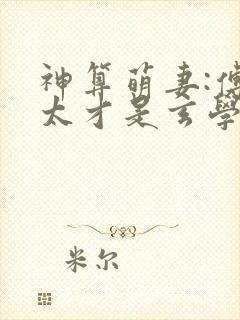 神算萌妻:傅
太才是玄學
米尔